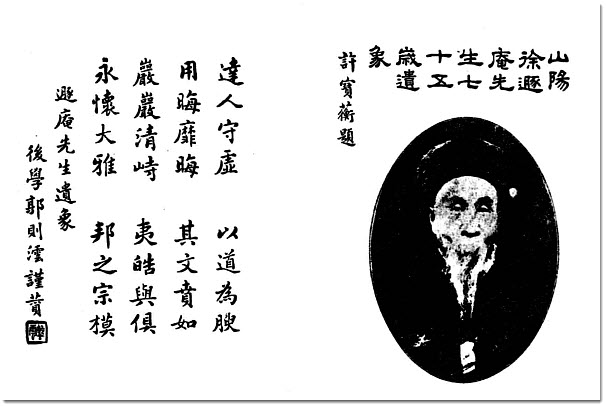 山陽
徐遯
庵先
生七
十五
歲遺
象
許寶蘅題
達人守虛 以道為腴
用晦靡晦 其文賁如
巖巖清峙 夷皓與俱
永懷大雅 邦之宗模
遯庵先生遺象
後學郭則澐謹贊